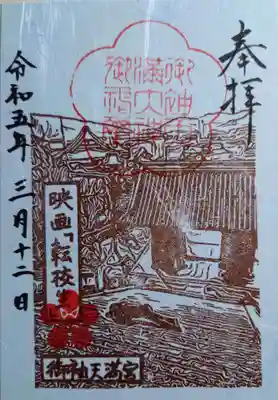 奉拝
令和五年 三月十二日
映画「転校生
御袖天満宮